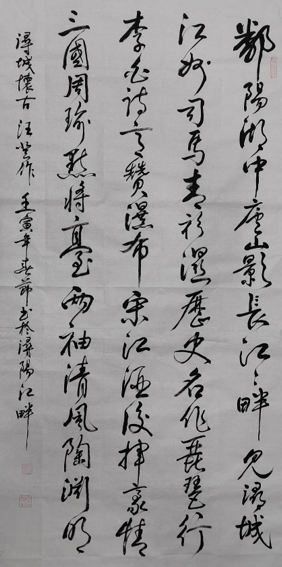 鄱陽湖中廬山影長江江畔見潯城
江州司馬青衫濕歷史名作琵琶行
李白詩言贊瀑布宋江酒後抒豪情
三國周瑜點將臺兩袖清風陶淵明
潯城懷古 汪 作 壬寅年春節書於潯陽江畔